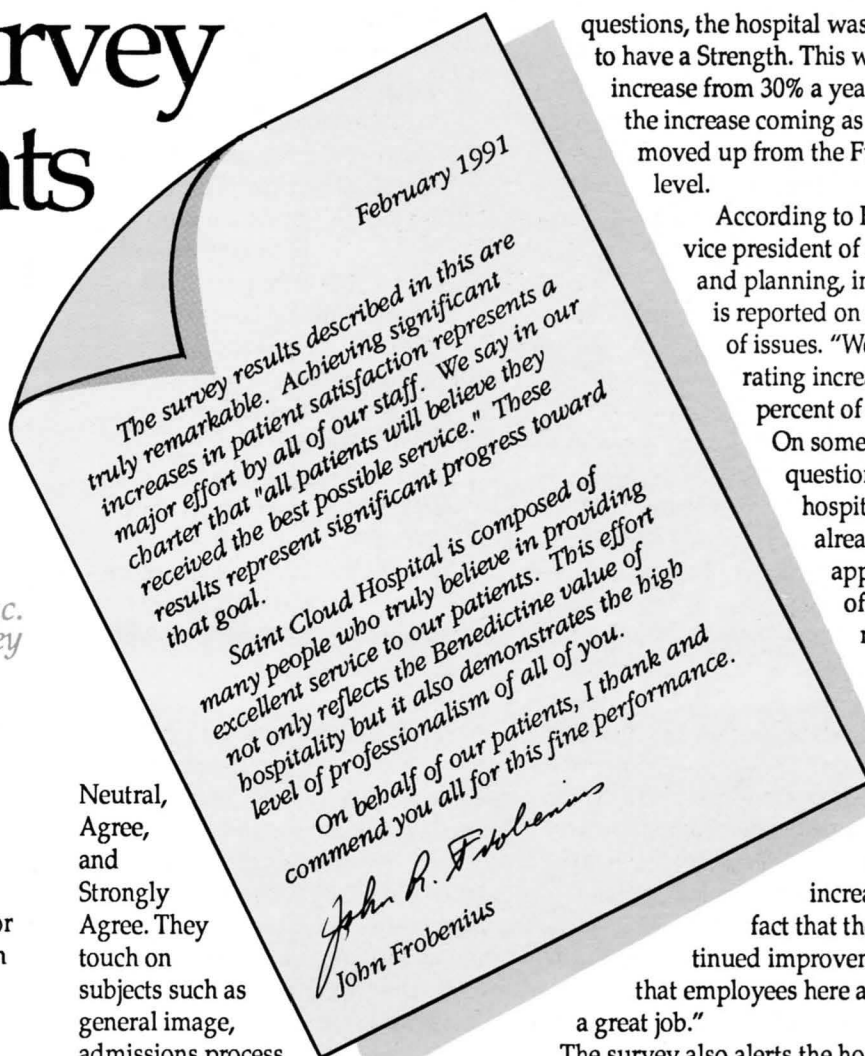 rvey
nts
c.
ey
Neutral,
Agree,
and
Strongly
Agree. They
touch on
subjects such as
general image,
admissions process
or
n
February 1991
The survey results described in this are
truly remarkable. Achieving significant
increases in patient satisfaction represents a
major effort by all of our staff. We say in our
charter that "all patients will believe they
received the best possible service." These
results represent significant progress toward
that goal.
Saint Cloud Hospital is composed of
many people who truly believe in providing
excellent service to our patients. This effort
not only reflects the Benedictine value of
hospitality but it also demonstrates the high
level of professionalism of all of you.
On behalf of our patients, I thank and
commend you all for this fine performance.
John R. Frobenius
John Frobenius
questions, the hospital was
to have a Strength. This w
increase from 30% a yea
the increase coming as
moved up from the F
level.
According to
vice president of
and planning, i
is reported on
of issues. "W
rating incre
percent of
On some
question
hospit
alrea
app
of
increa
fact that th
tinued improver
that employees here a
a great job."
The survey also alerts the ho